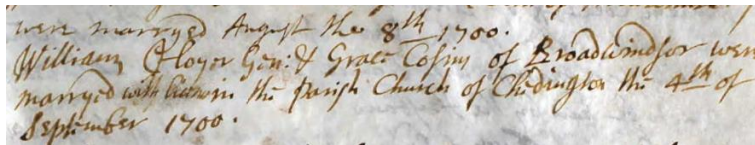 were marryed August the 8th 1700.
William Floyer Gen: & Grace Cosins of Broadwindsor were
marryed with licence in the Parish Church of Chedington the 4th of
September 1700.